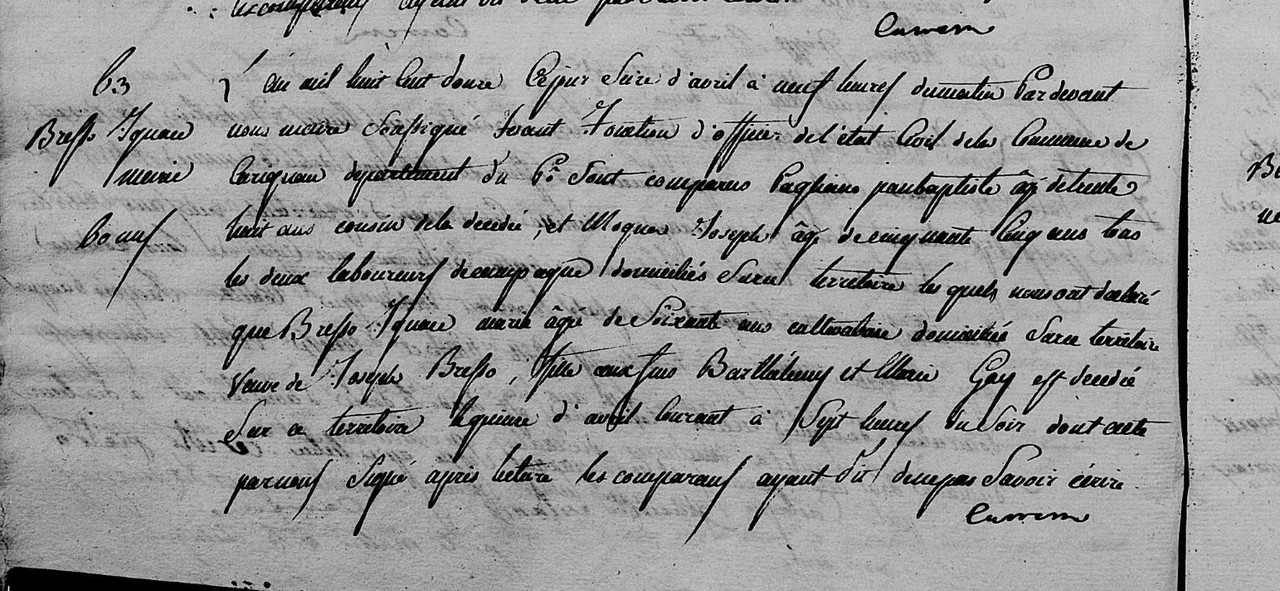 63
Bresso Ignace
marie
60 ans
L'an mil huit cent douze Ce jour Seize d'avril à neuf heures du matin Pardevant
nous maire Soussigné fesant fonction d'officier de l'état Civil de la Commune de
Carignan departement du Pô Sont comparus Pagliano jeanbaptiste âgé de trente
huit ans cousin de la decedée, et Joseph âgé de cinquante Cinq ans tous
les deux laboureurs de campagne domiciliés Sur ce territoire les quels nous ont declaré
que Bresso Ignace marie âgée de Soixante ans domiciliée Sur ce territoire
Veuve de Joseph Bresso, fille aux fus Barthélemy et Marie Gay est decedée
Sur ce territoire le quinze d'avril Courant à Sept heures du Soir dont acte
par nous Signé après lecture les comparans ayant dit de ne pas Savoir écrire